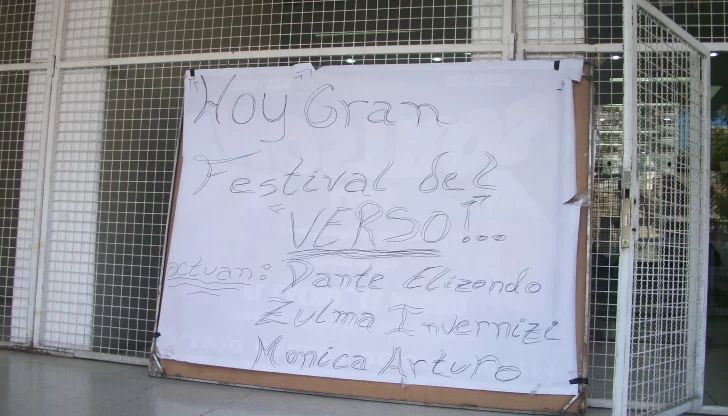 "Hoy" Gran
Festival del
"VERSO"!...
actuan: Dante Elizondo
Zulma Invernizi
Monica Arturo